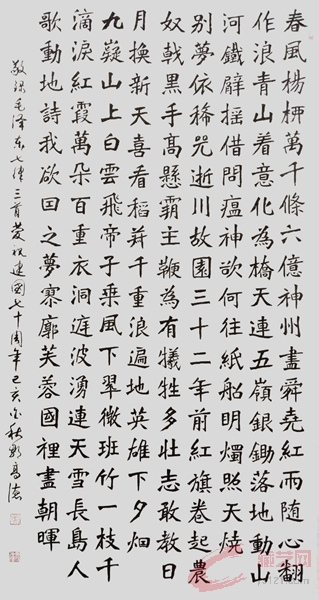 春風楊柳萬千條六億神州盡舜堯紅雨隨心翻
作浪青山着意化為橋天連五嶺銀鋤落地動山
河鐵臂搖借問瘟神欲何往紙船明燭照天燒
別夢依稀咒逝川故園三十二年前紅旗卷起農
奴戟黑手高懸霸主鞭為有犧牲多壯志敢教日
月換新天喜看稻菽千重浪遍地英雄下夕畑
九嶷山上白雲飛帝子乘風下翠微班竹一枝千
滴淚紅霞萬朵百重衣洞庭波湧連天雪長島人
歌動地詩我欲因之夢寥廓芙蓉國裡盡朝暉
敬录毛泽东七律三首慶祝建國七十周年己亥秋